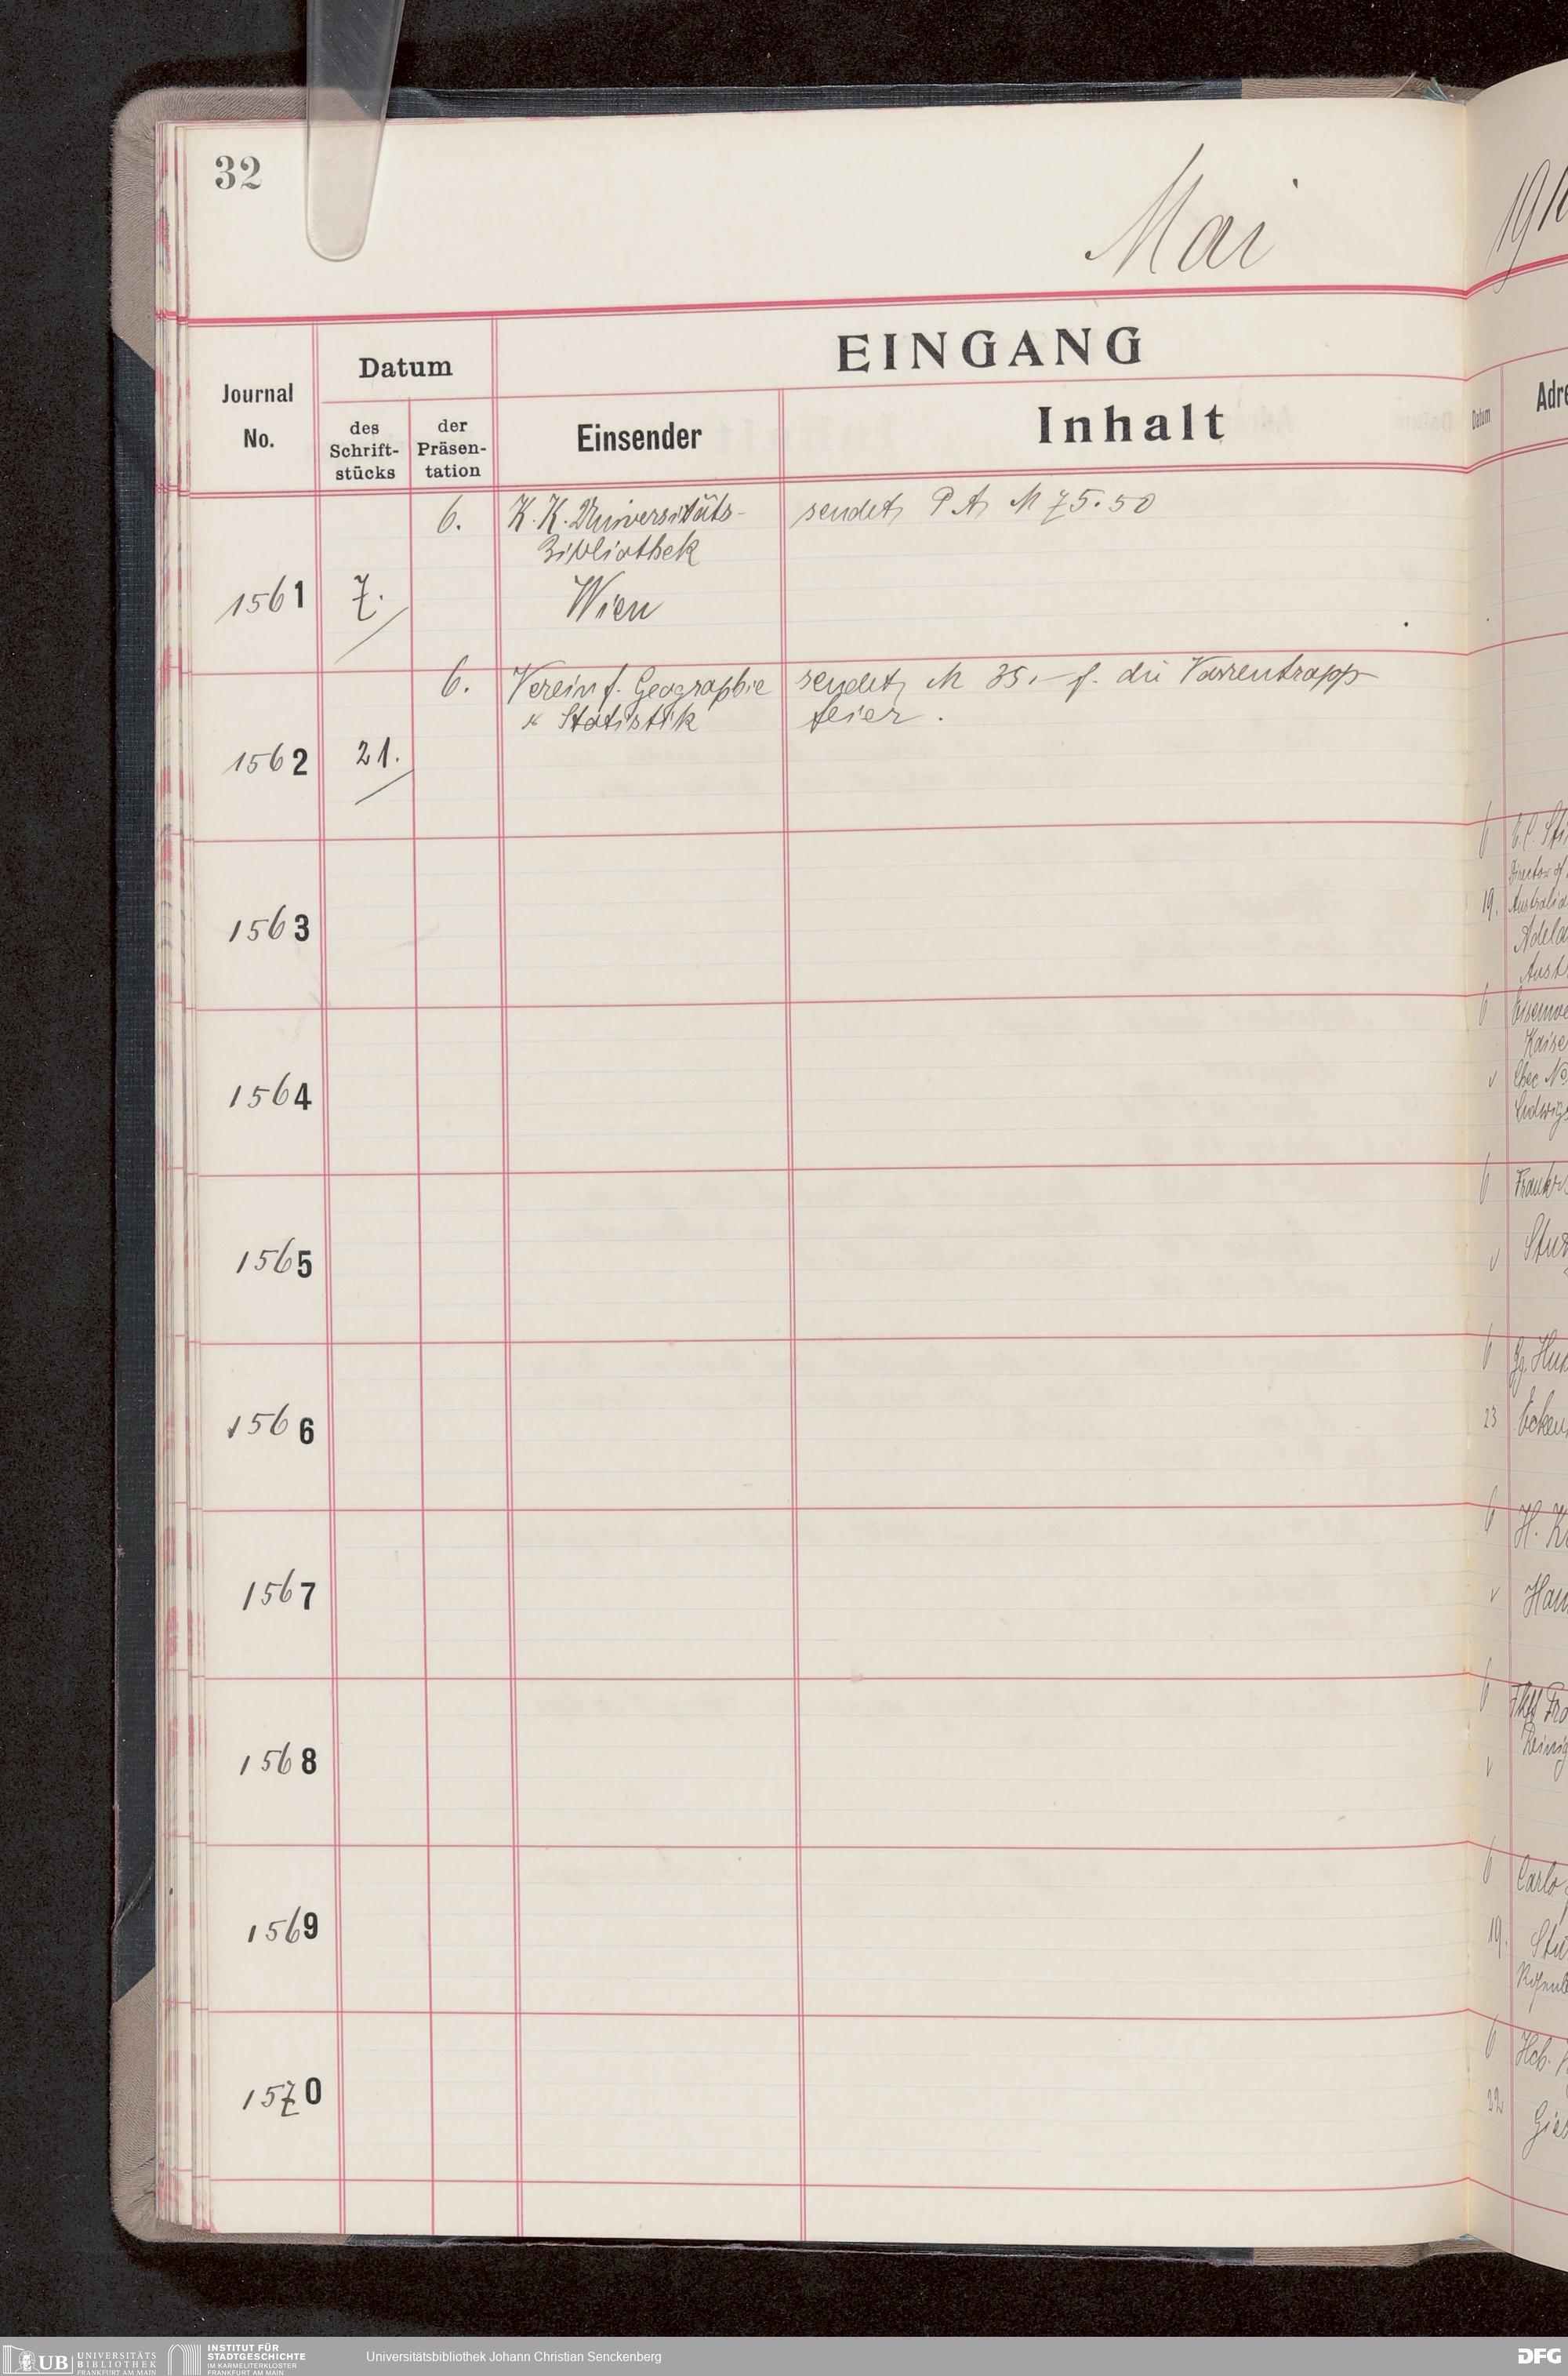 32
Mai
191
EINGANG
Journal
No.
Datum
des
Schrift-
stücks
der
Präsen-
tation
Einsender
Inhalt
Datum
Adre
1561
7.
6.
K. K. Universitäts-
Bibliothek
Wien
sendet P. A. M 75.50
1562
21.
6.
Verein f. Geographie
u Statistik
sendet M 35.– f. die Varrentrapp
feier.
1563
1564
1565
1566
1567
1568
1569
1570
6
19.
Director of
Australia
Adela
Aust
6
Kaise
Ludwigs
6
Frankf
Stu
6
23
6
H. K
Ham
6
6
Carlo
19.
Stu
6
22
Gies
UB
UNIVERSITÄTS
BIBLIOTHEK
FRANKFURT AM MAIN
INSTITUT FÜR
STADTGESCHICHTE
IM KARMELITERKLOSTER
FRANKFURT AM MAIN
Universitätsbibliothek Johann Christian Senckenberg
DFG